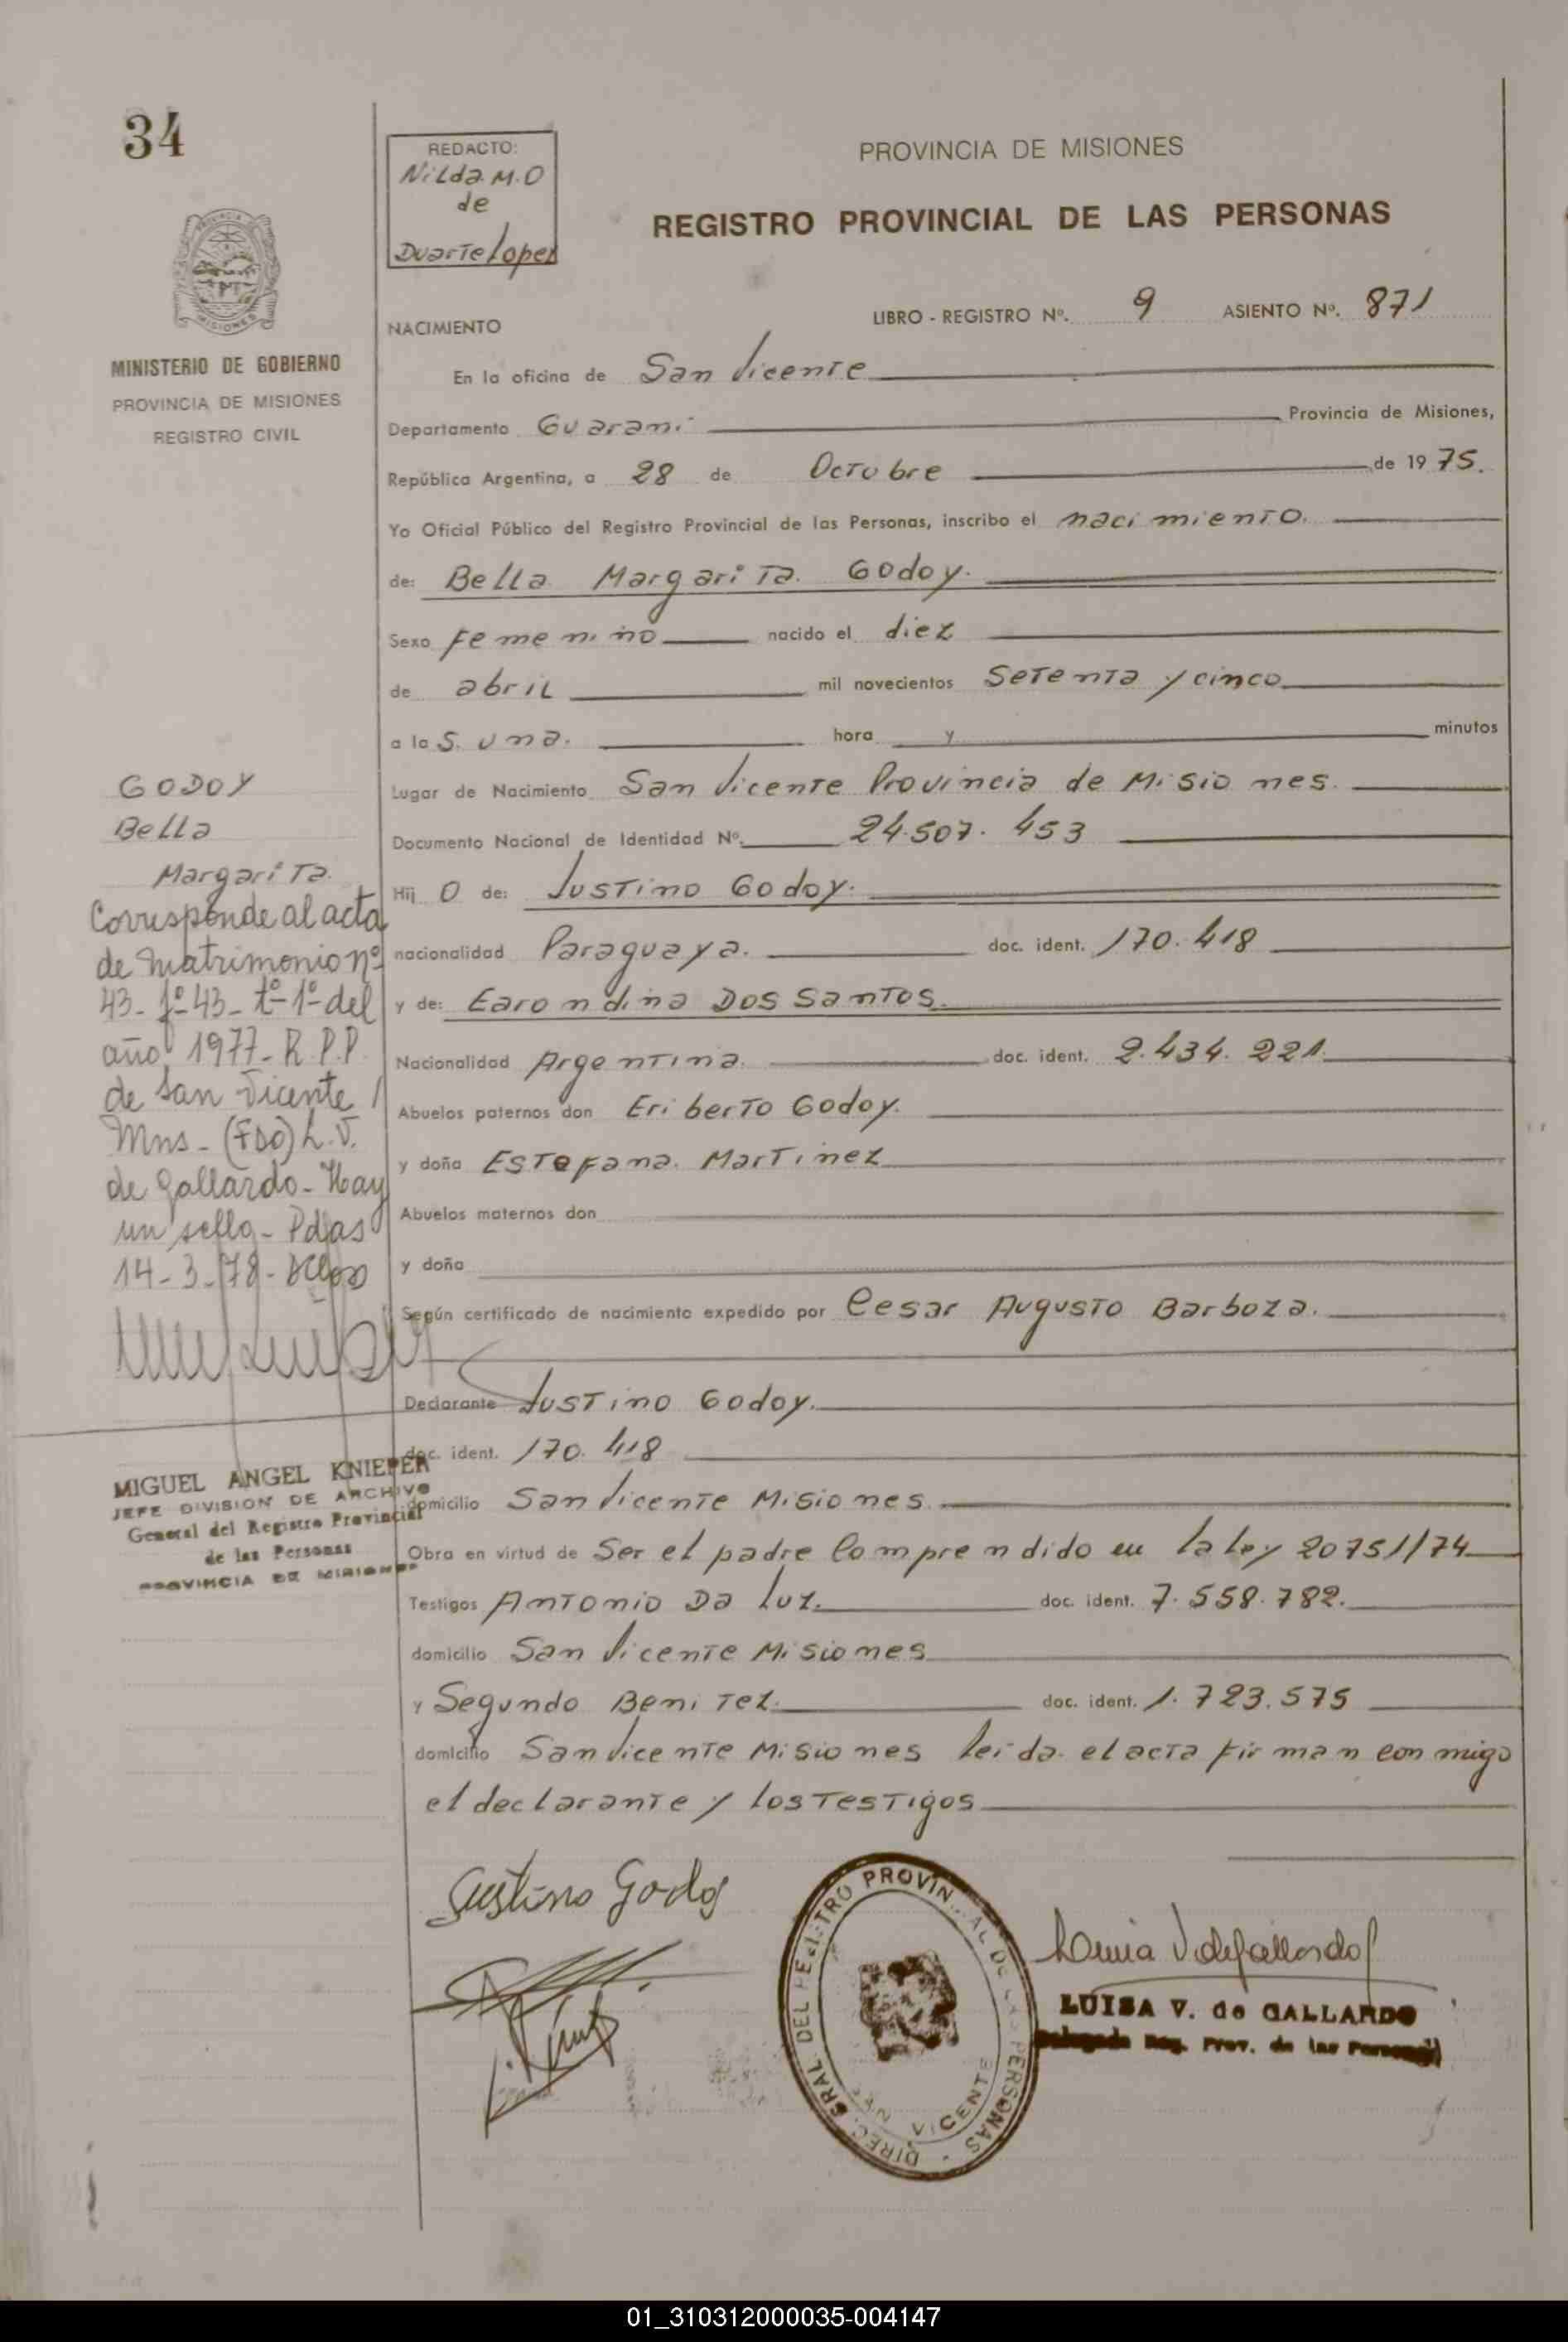 34
REDACTO:
Nilda. M. O
de
Duarte Lopez
PROVINCIA DE MISIONES
REGISTRO PROVINCIAL DE LAS PERSONAS
MINISTERIO DE GOBIERNO
PROVINCIA DE MISIONES
REGISTRO CIVIL
LIBRO - REGISTRO Nº. 9 ASIENTO Nº. 871
NACIMIENTO
En la oficina de San Vicente
Departamento Guarani Provincia de Misiones,
República Argentina, a 28 de Octubre de 1975.
Yo Oficial Público del Registro Provincial de las Personas, inscribo el nacimiento.
de: Bella Margarita. Godoy.
Sexo Femenino nacido el diez
de abril mil novecientos Setenta y cinco
a las. una. hora y minutos
Lugar de Nacimiento San Vicente Provincia de Misiones.
Documento Nacional de Identidad Nº. 24.507.453
Hij o de: Justino Godoy.
nacionalidad Paraguaya. doc. ident. 170.418
y de: Earondina Dos Santos.
Nacionalidad Argentina. doc. ident. 2.434.221.
Abuelos paternos don Eriberto Godoy.
y doña Estefana. Martinez
Abuelos maternos don
y doña
Según certificado de nacimiento expedido por Cesar Augusto Barboza.
Declarante Justino Godoy.
doc. ident. 170.418
domicilio San Vicente Misiones.
Obra en virtud de Ser el padre Comprendido en la Ley 20751/74
Testigos Antonio Da Luz. doc. ident. 7.558.782.
domicilio San Vicente Misiones
y Segundo Benitez. doc. ident. 1.723.575
domicilio San Vicente Misiones leida el acta firman conmigo
el declarante y los testigos
GODOY
Bella
Margarita.
Corresponde al acta
de matrimonio nº
43- fº-43- tº-1º-del
año 1977- R.P.P.
de San Vicente
Mns- (FDO) L.V.
de Gallardo- Hay
un sello- Pdas
14-3-78-
MIGUEL ANGEL KNIEPER
JEFE DIVISION DE ARCHIVO
General del Registro Provincial
de las Personas
PROVINCIA DE MISIONES
Justino Godoy
DIREC. GRAL. DEL REGISTRO PROVINCIAL DE LAS PERSONAS
SAN VICENTE
Luisa V de Gallardo
LUISA V. de GALLARDO
Delegada Reg. Prov. de las Personas
01_310312000035-004147